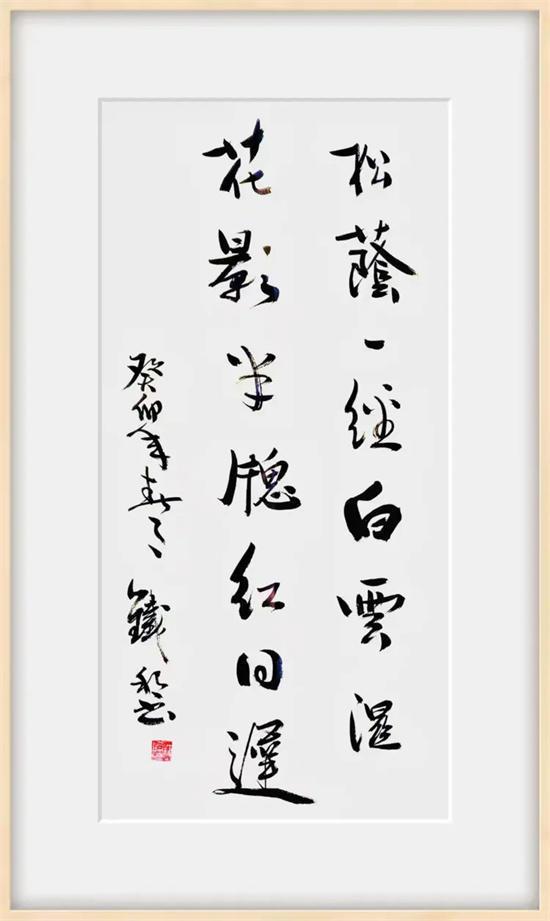 松蔭一經白雲濕
花影半牕紅日遲
癸卯年春 鐵